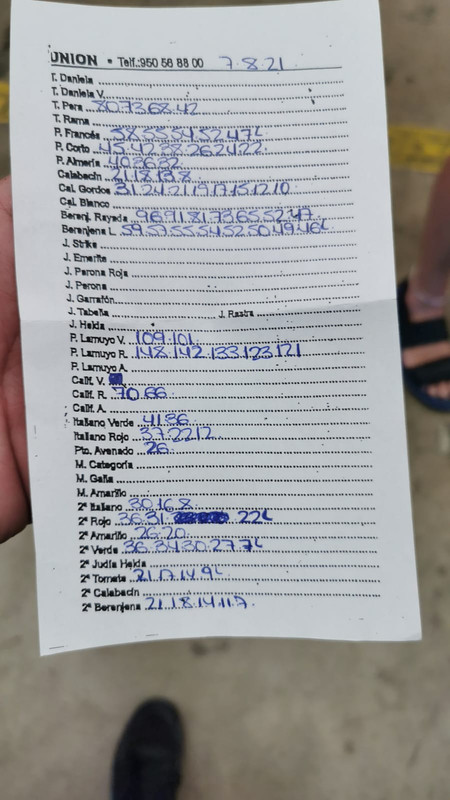 UNION • Telf.:950 56 88 00 7.8.21
T. Daniela
T. Daniela V.
T. Pera 80.73.68.42
T. Rama
P. Francés 58.55.54.52.47L
P. Corto 45.42.38.26.24.22
P. Almería 40.36.32
Calabacín 21.18.13.8
Cal. Gordos 31.24.21.19.17.15.12.10
Cal. Blanco
Berenj. Rayada 96.91.81.73.65.52.47
Berenjena L. 59.57.55.54.52.50.49.46L
J. Strike
J. Emerite
J. Perona Roja
J. Perona
J. Garrafón
J. Tabella J. Rastra
J. Helda
P. Lamuyo V. 109.101
P. Lamuyo R. 148.142.133.123.121
P. Lamuyo A.
Calif. V.
Calif. R. 70.66
Calif. A.
Italiano Verde 41.36
Italiano Rojo 37.22.12
Pto. Avenado 26
M. Categoría
M. Galia
M. Amarillo
2ª Italiano 30.16.8
2ª Rojo 36.31 22L
2ª Amarillo 26.20
2ª Verde 36.34.30.27.7L
2ª Judía Helda
2ª Tomate 21.17.14.9L
2ª Calabacín
2ª Berenjena 21.18.14.11.7